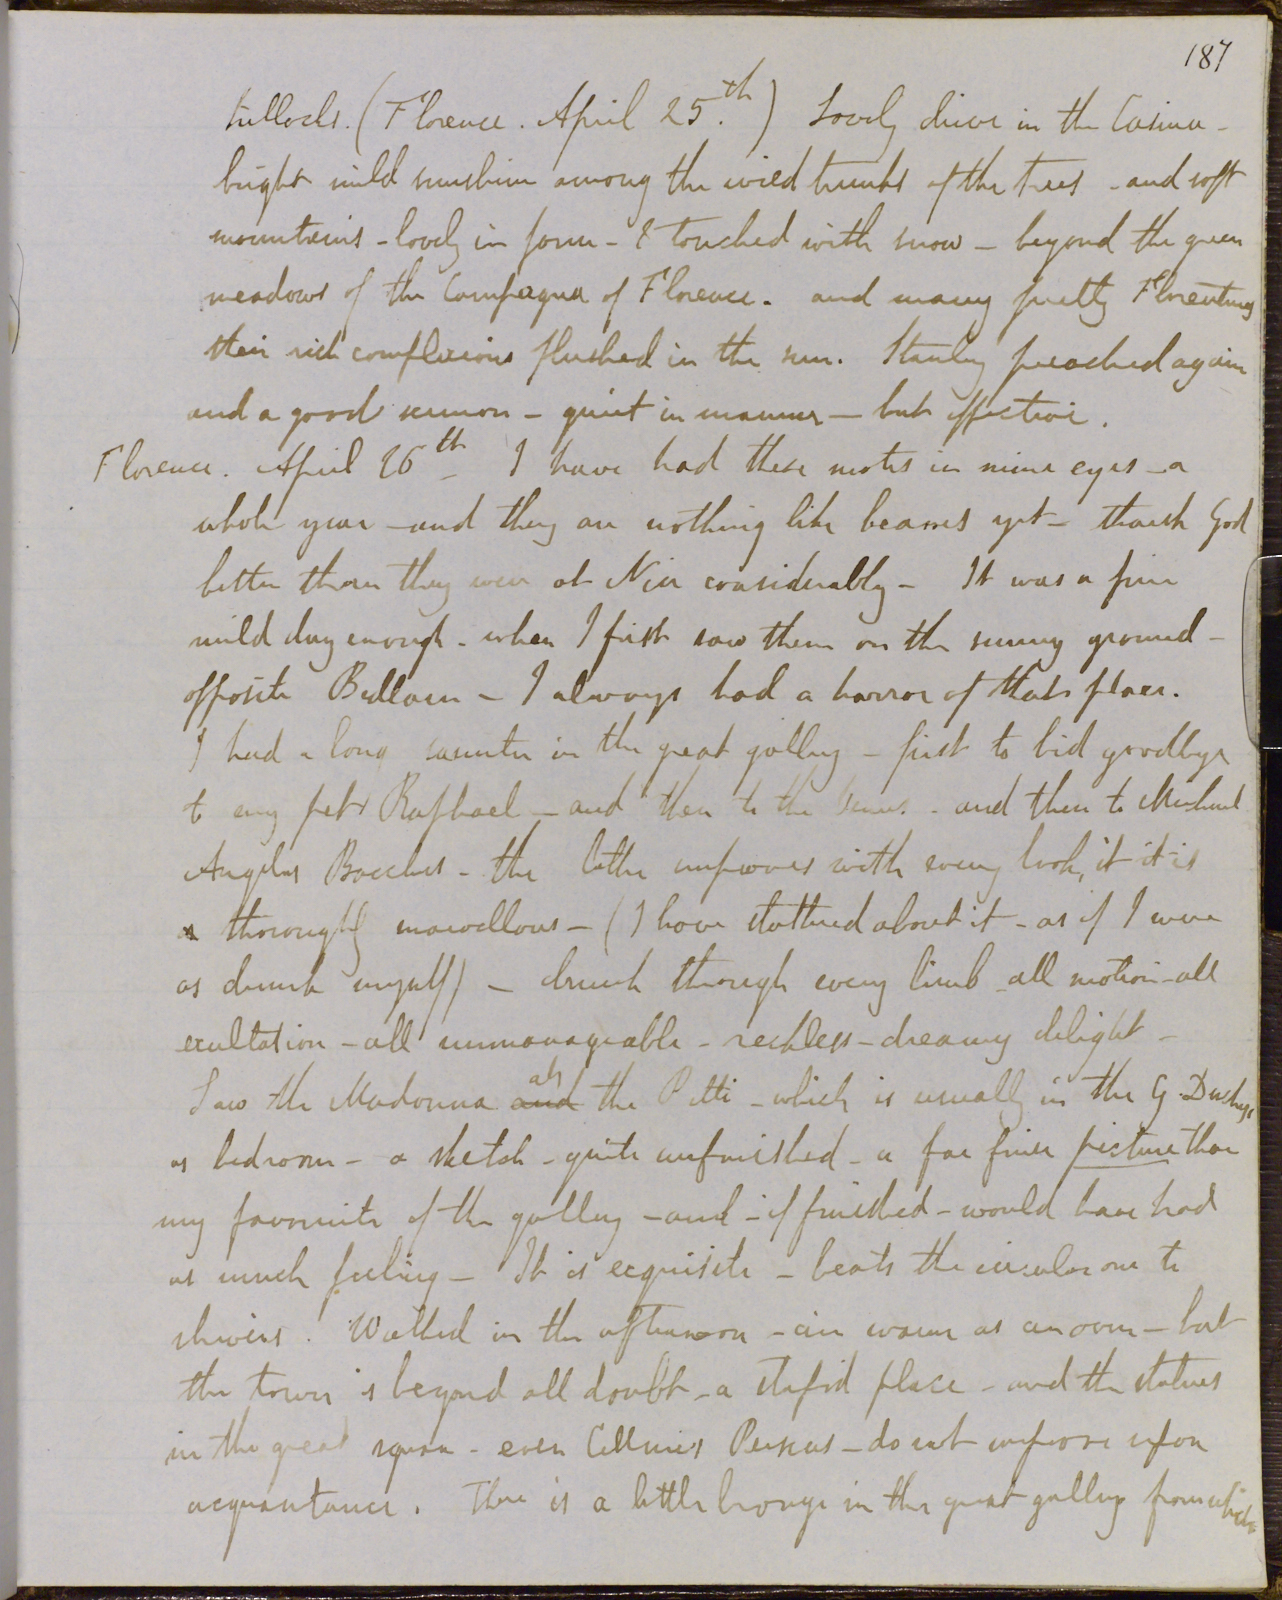 187
bullocks. (Florence. April 25.th) Lovely drive in the Casino -
bright mild sunshine among the ivied trunks of the trees - and soft
mountains - lovely in form - & touched with snow - beyond the green
meadows of the Campagna of Florence. and many pretty Florentines
their rich complexions flushed in the sun. Stanley preached again
and a good sermon - quiet in manner - but effective.
Florence. April 26th - I have had these motes in mine eyes - a
whole year - and they are nothing like beams yet - thank God
better than they were at Nice considerably - It was a fine
mild day enough - when I first saw them on the sunny ground -
opposite Balloon - I always had a horror of that place.
I had a long saunter in the great gallery - first to bid goodbye
to my pet Raphael - and then to the Venus - and then to Michael
Angelos Bacchus - the latter improves with every look, it it is
a thoroughly marvellous - (I have stuttered about it - as if I were
as drunk myself) - drunk through every limb - all motion - all
exultation - all unmanageable - reckless - dreamy delight -
Saw the Madonna and at the Pitti - which is usually in the G. Duchess
s bedroom - a sketch - quite unfinished - a far finer picture than
my favourite of the gallery - and - if finished - would have had
as much feeling - It is exquisite - beats the circular one to
shivers. Walked in the afternoon - air warm as an oven - but
the town is beyond all doubt - a stupid place - and the statues
in the great square - even Cellini's Perseus - do not improve upon
acquaintance. There is a little bronze in the great gallery from which